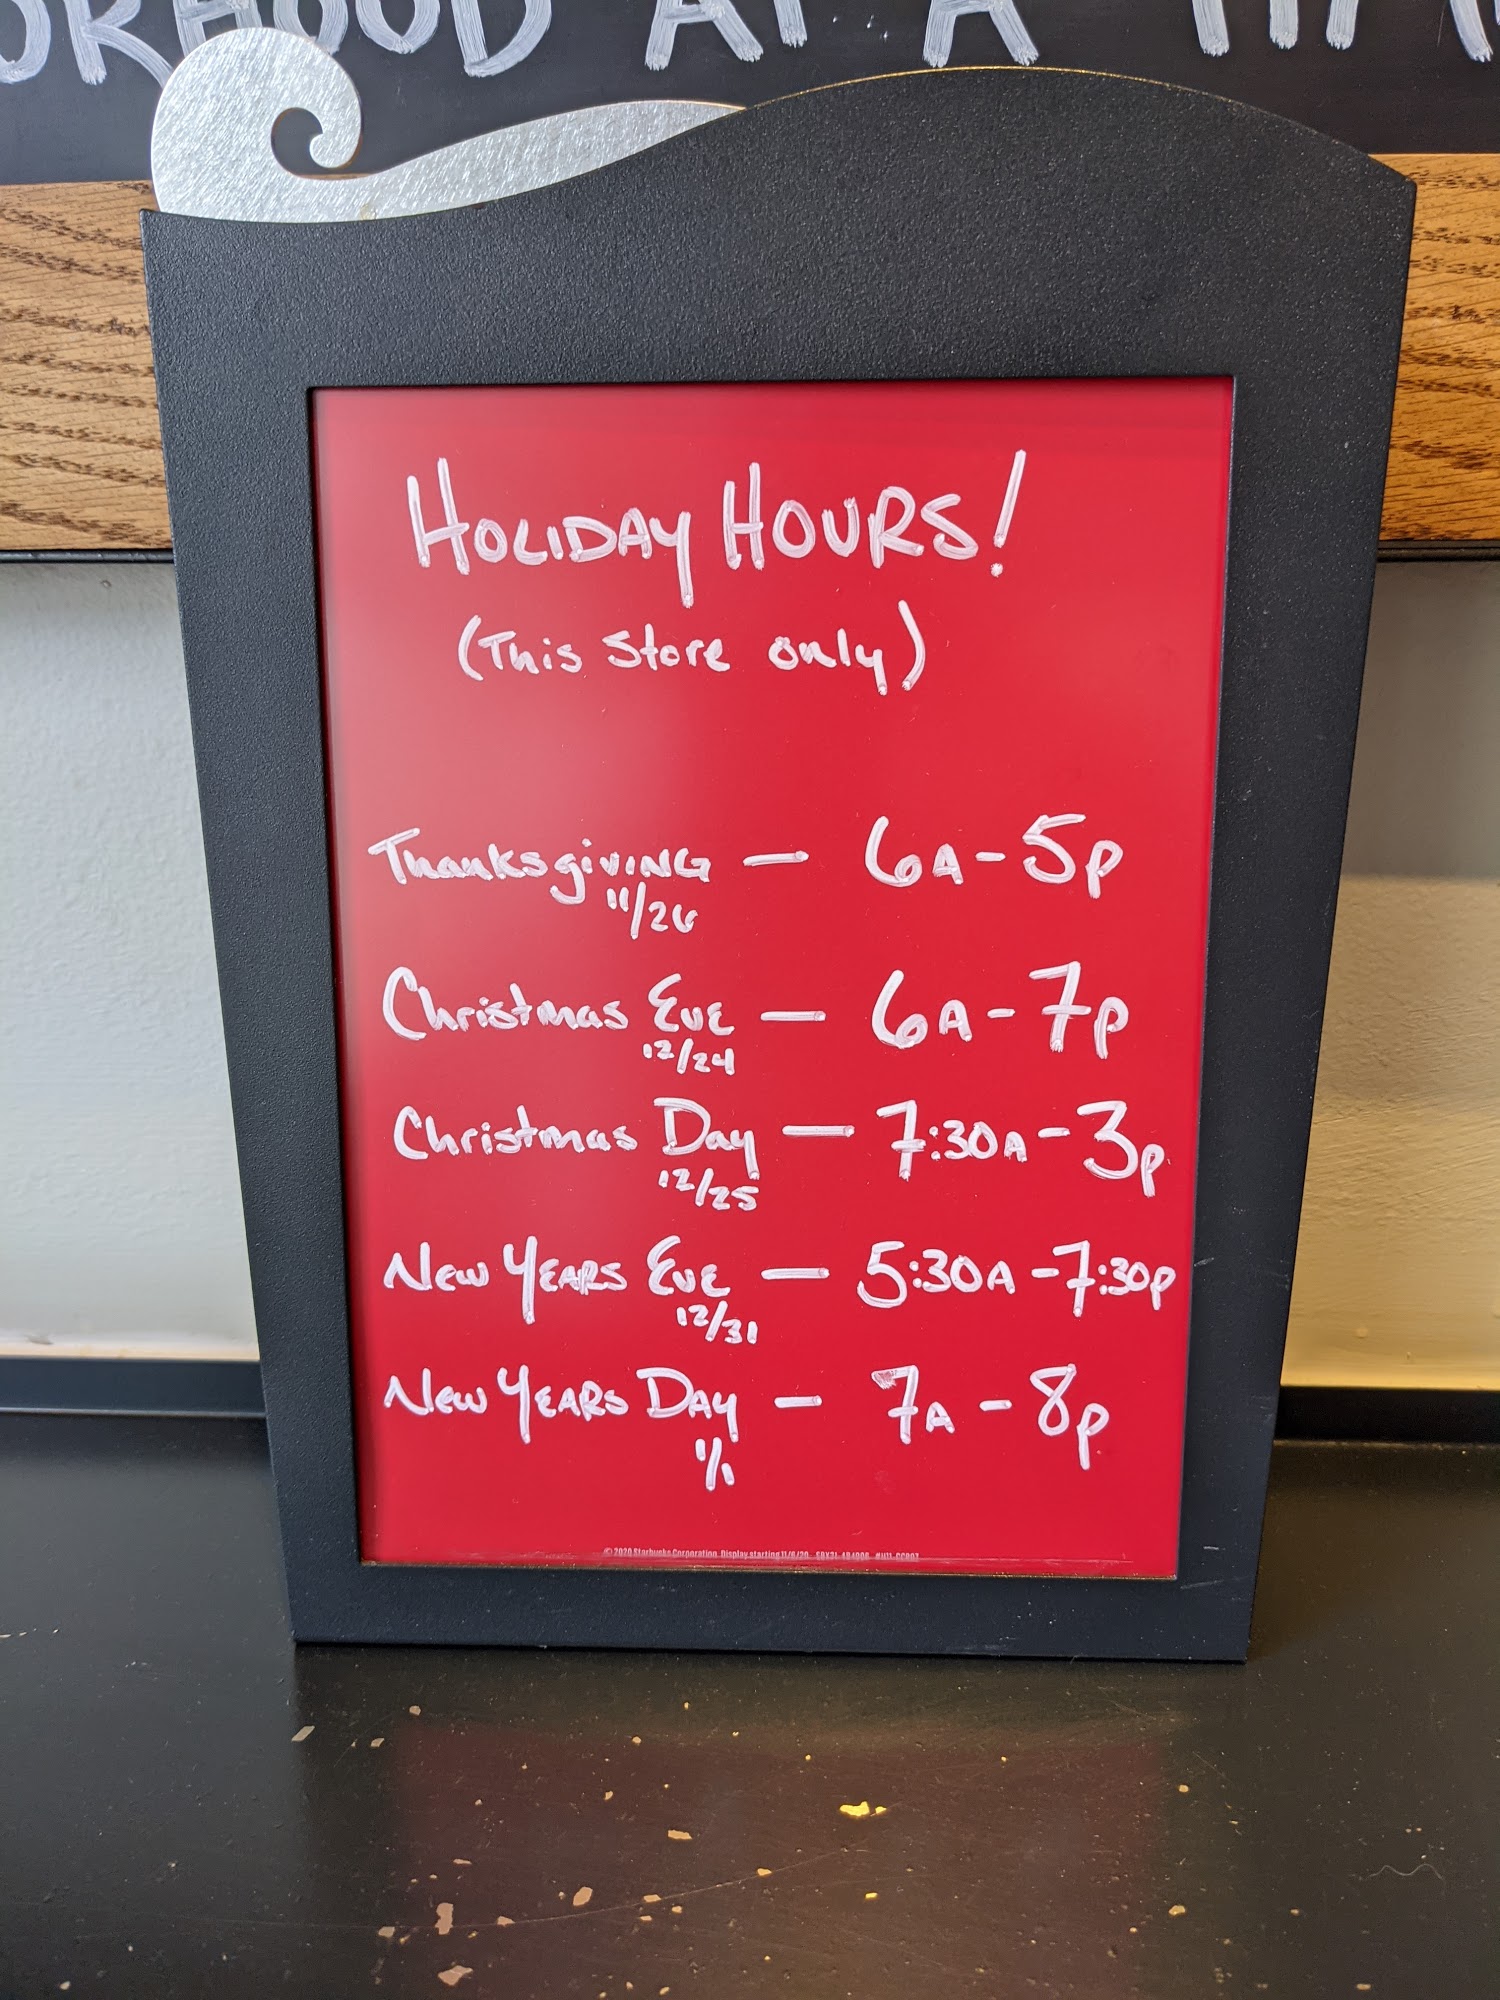 HOLIDAY HOURS!
(This Store only)
Thanksgiving — 6A - 5p
11/26
Christmas Eve — 6A - 7p
12/24
Christmas Day — 7:30A - 3p
12/25
New Years Eve — 5:30A - 7:30p
12/31
New Years Day — 7A - 8p
1/1
© 2020 Starbucks Corporation. Display starting 11/6/20.